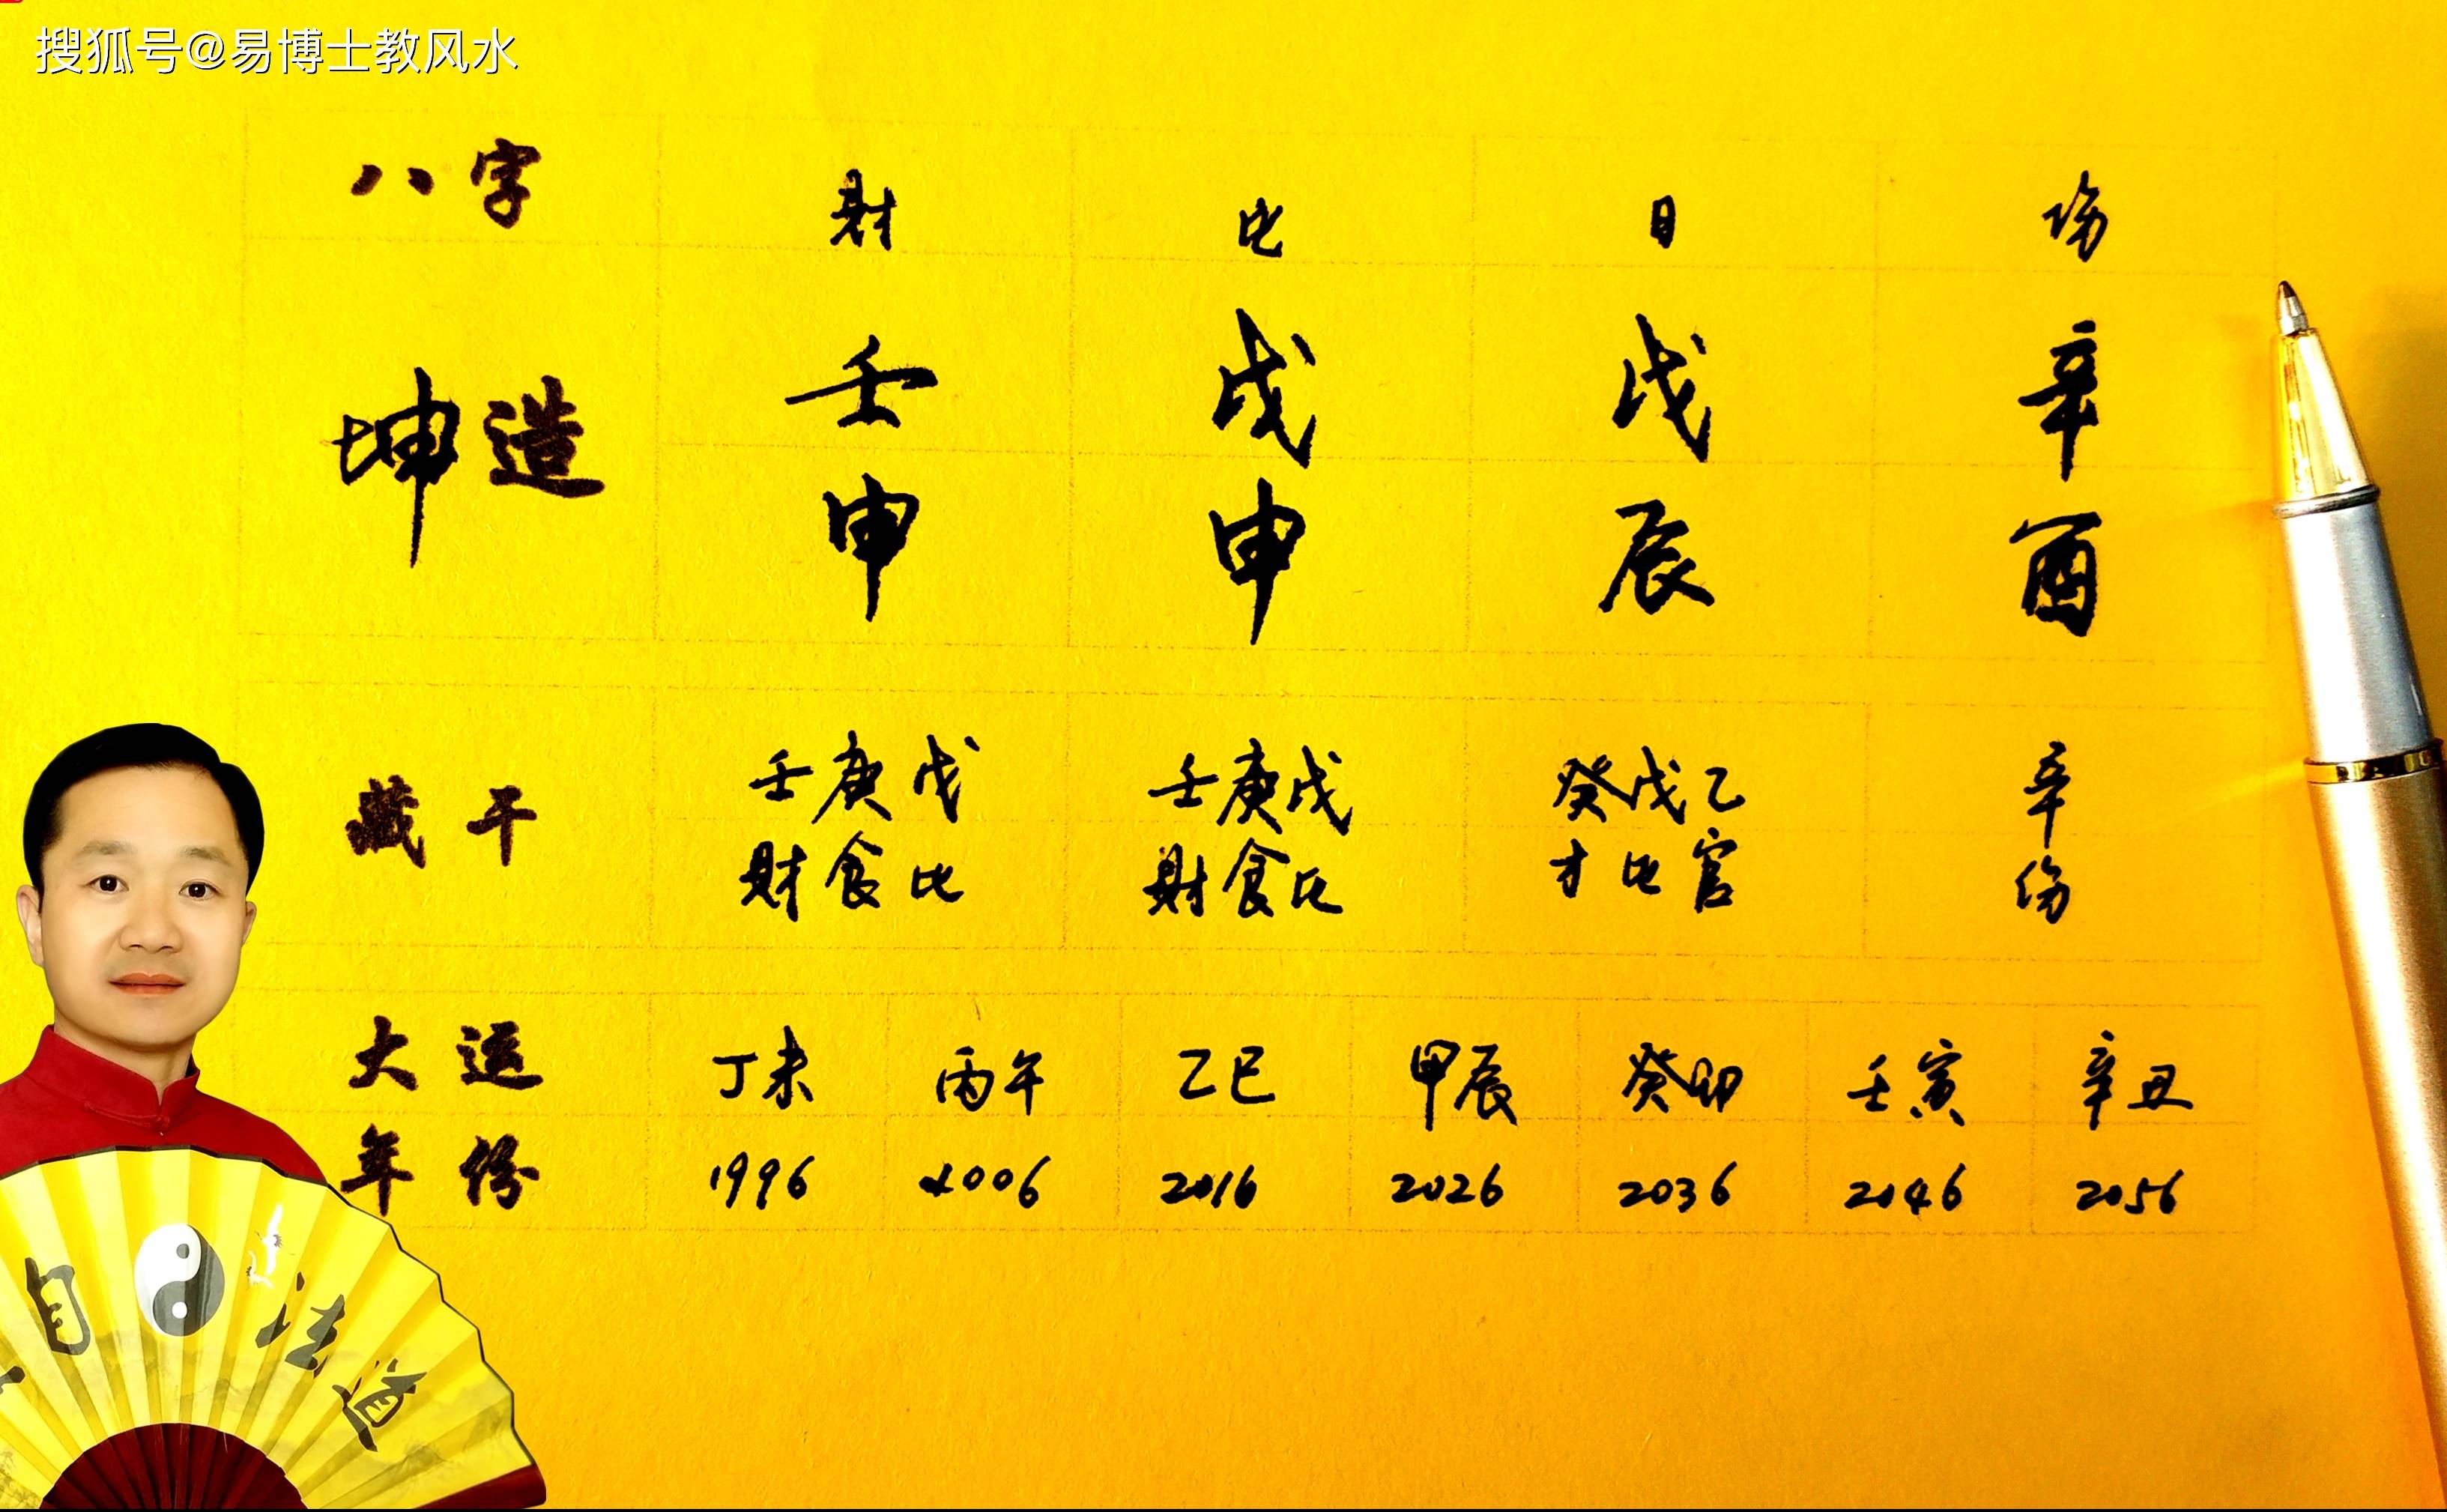 搜狐号@易博士教风水
八字 财 比 日 伤
坤造 壬 戊 戊 辛
申 申 辰 酉
藏干 壬庚戊 壬庚戊 癸戊乙 辛
财食比 财食比 才比官 伤
大运 丁未 丙午 乙巳 甲辰 癸卯 壬寅 辛丑
年份 1996 2006 2016 2026 2036 2046 2056
自 法道